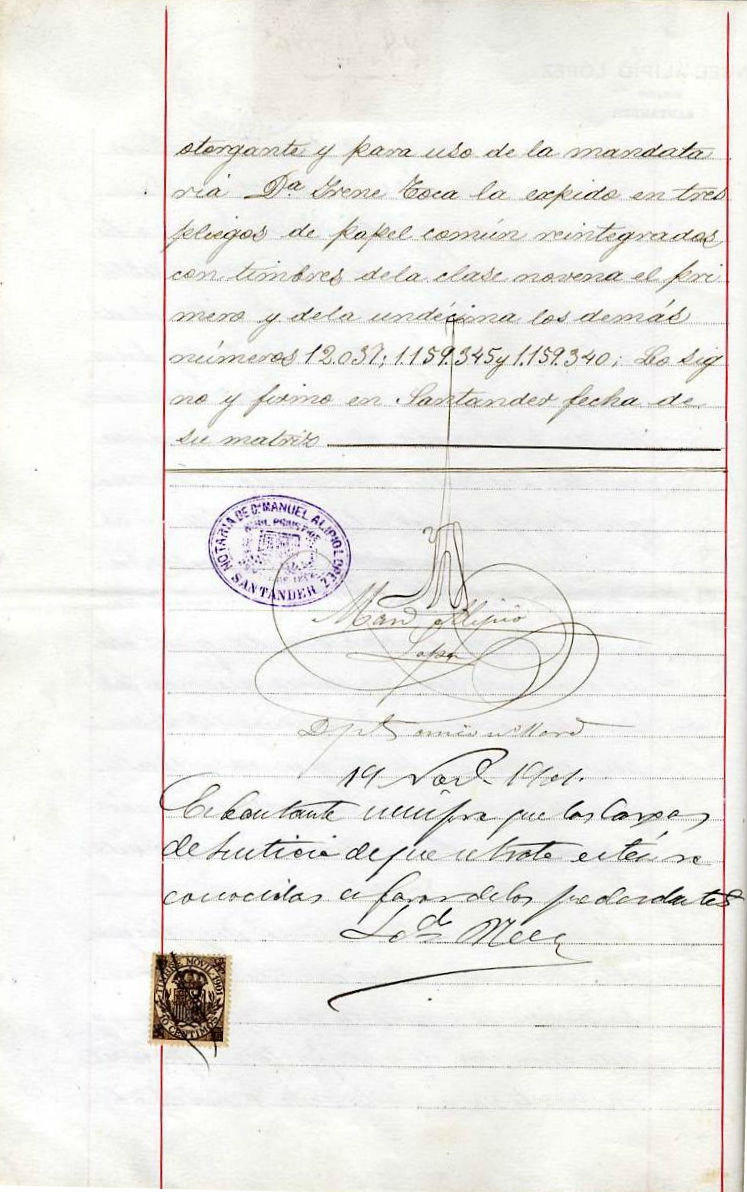 otorgante y para uso de la mandata
ria Dª Irene Toca la expido en tres
pliegos de papel común reintegrados
con timbres dela clase novena el pri
mero y dela undécima los demás
números 12.037; 1.159.345 y 1.159.340; Lo sig
no y firmo en Santander fecha de
su matriz
NOTARIA DE Dn MANUEL ALIPIO LOPEZ
SANTANDER
Manl Alipio
Lopez
19 Nov. 1901.
que las cargas
de justicia de que se trata estén re
conocidas a favor de los poderdantes
Ldo
TIMBRE MOVIL 1901
10 CENTIMOS